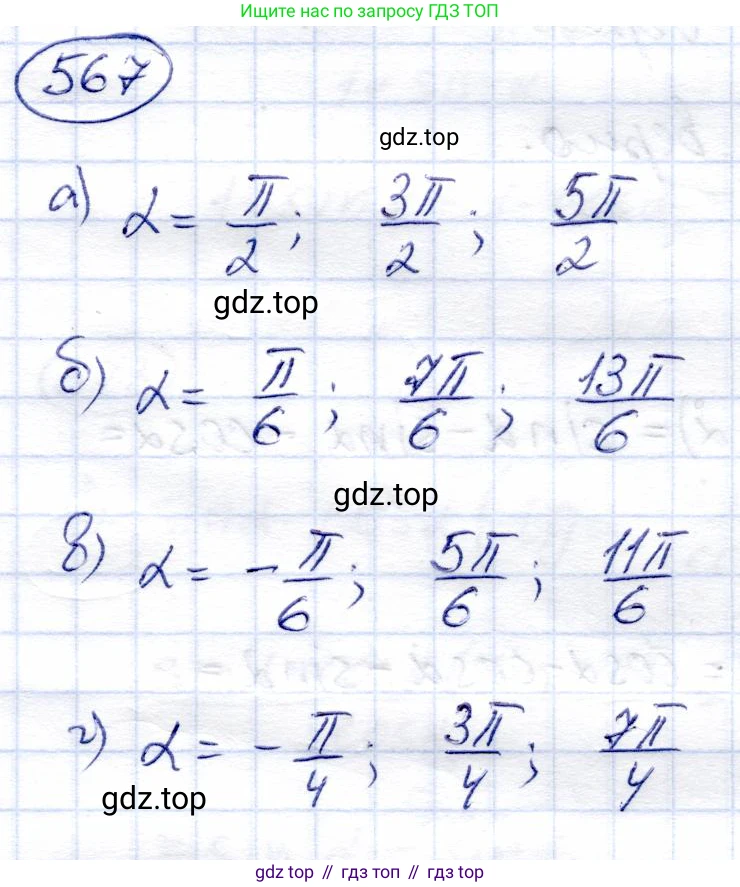 Ищите нас по запросу ГДЗ ТОП
567
gdz.top
а) α = π/2; 3π/2; 5π/2
gdz.top
б) α = π/6; 7π/6; 13π/6
gdz.top
в) α = -π/6; 5π/6; 11π/6
г) α = -π/4; 3π/4; 7π/4
gdz.top
gdz.top // гдз топ // гдз top